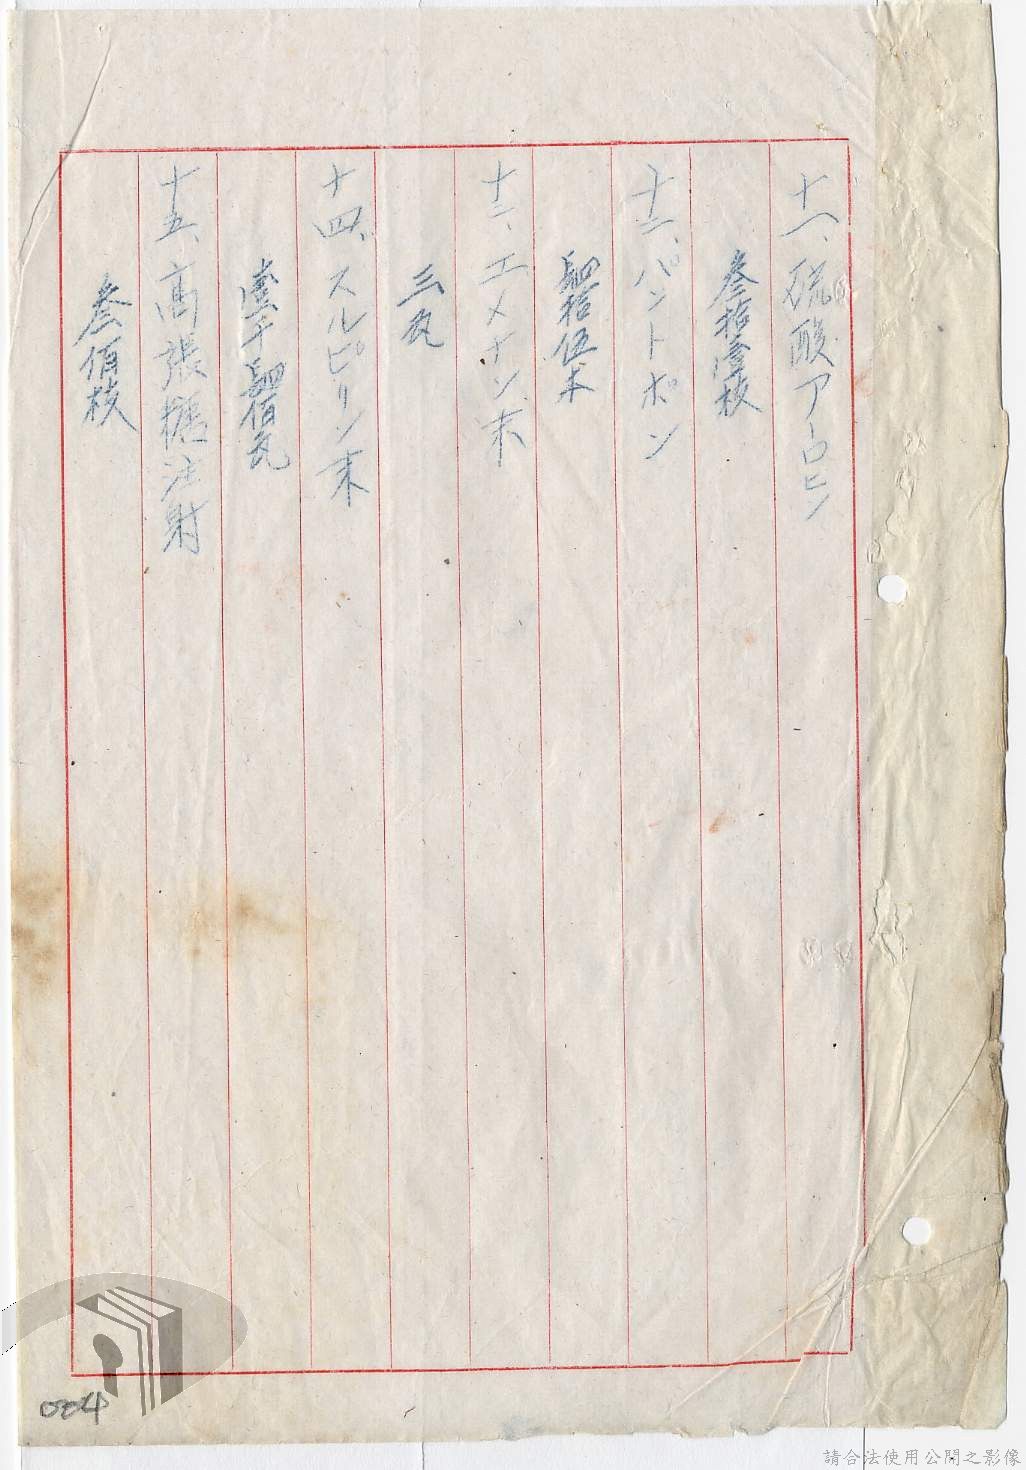 十一、硫酸アトロピン
叁拾壹枚
十二、パントポン
肆拾伍本
十三、エメチン末
三瓦
十四、スルピリン末
壹千肆佰瓦
十五、高張糖注射
叁佰枝
004
請合法使用公開之影像